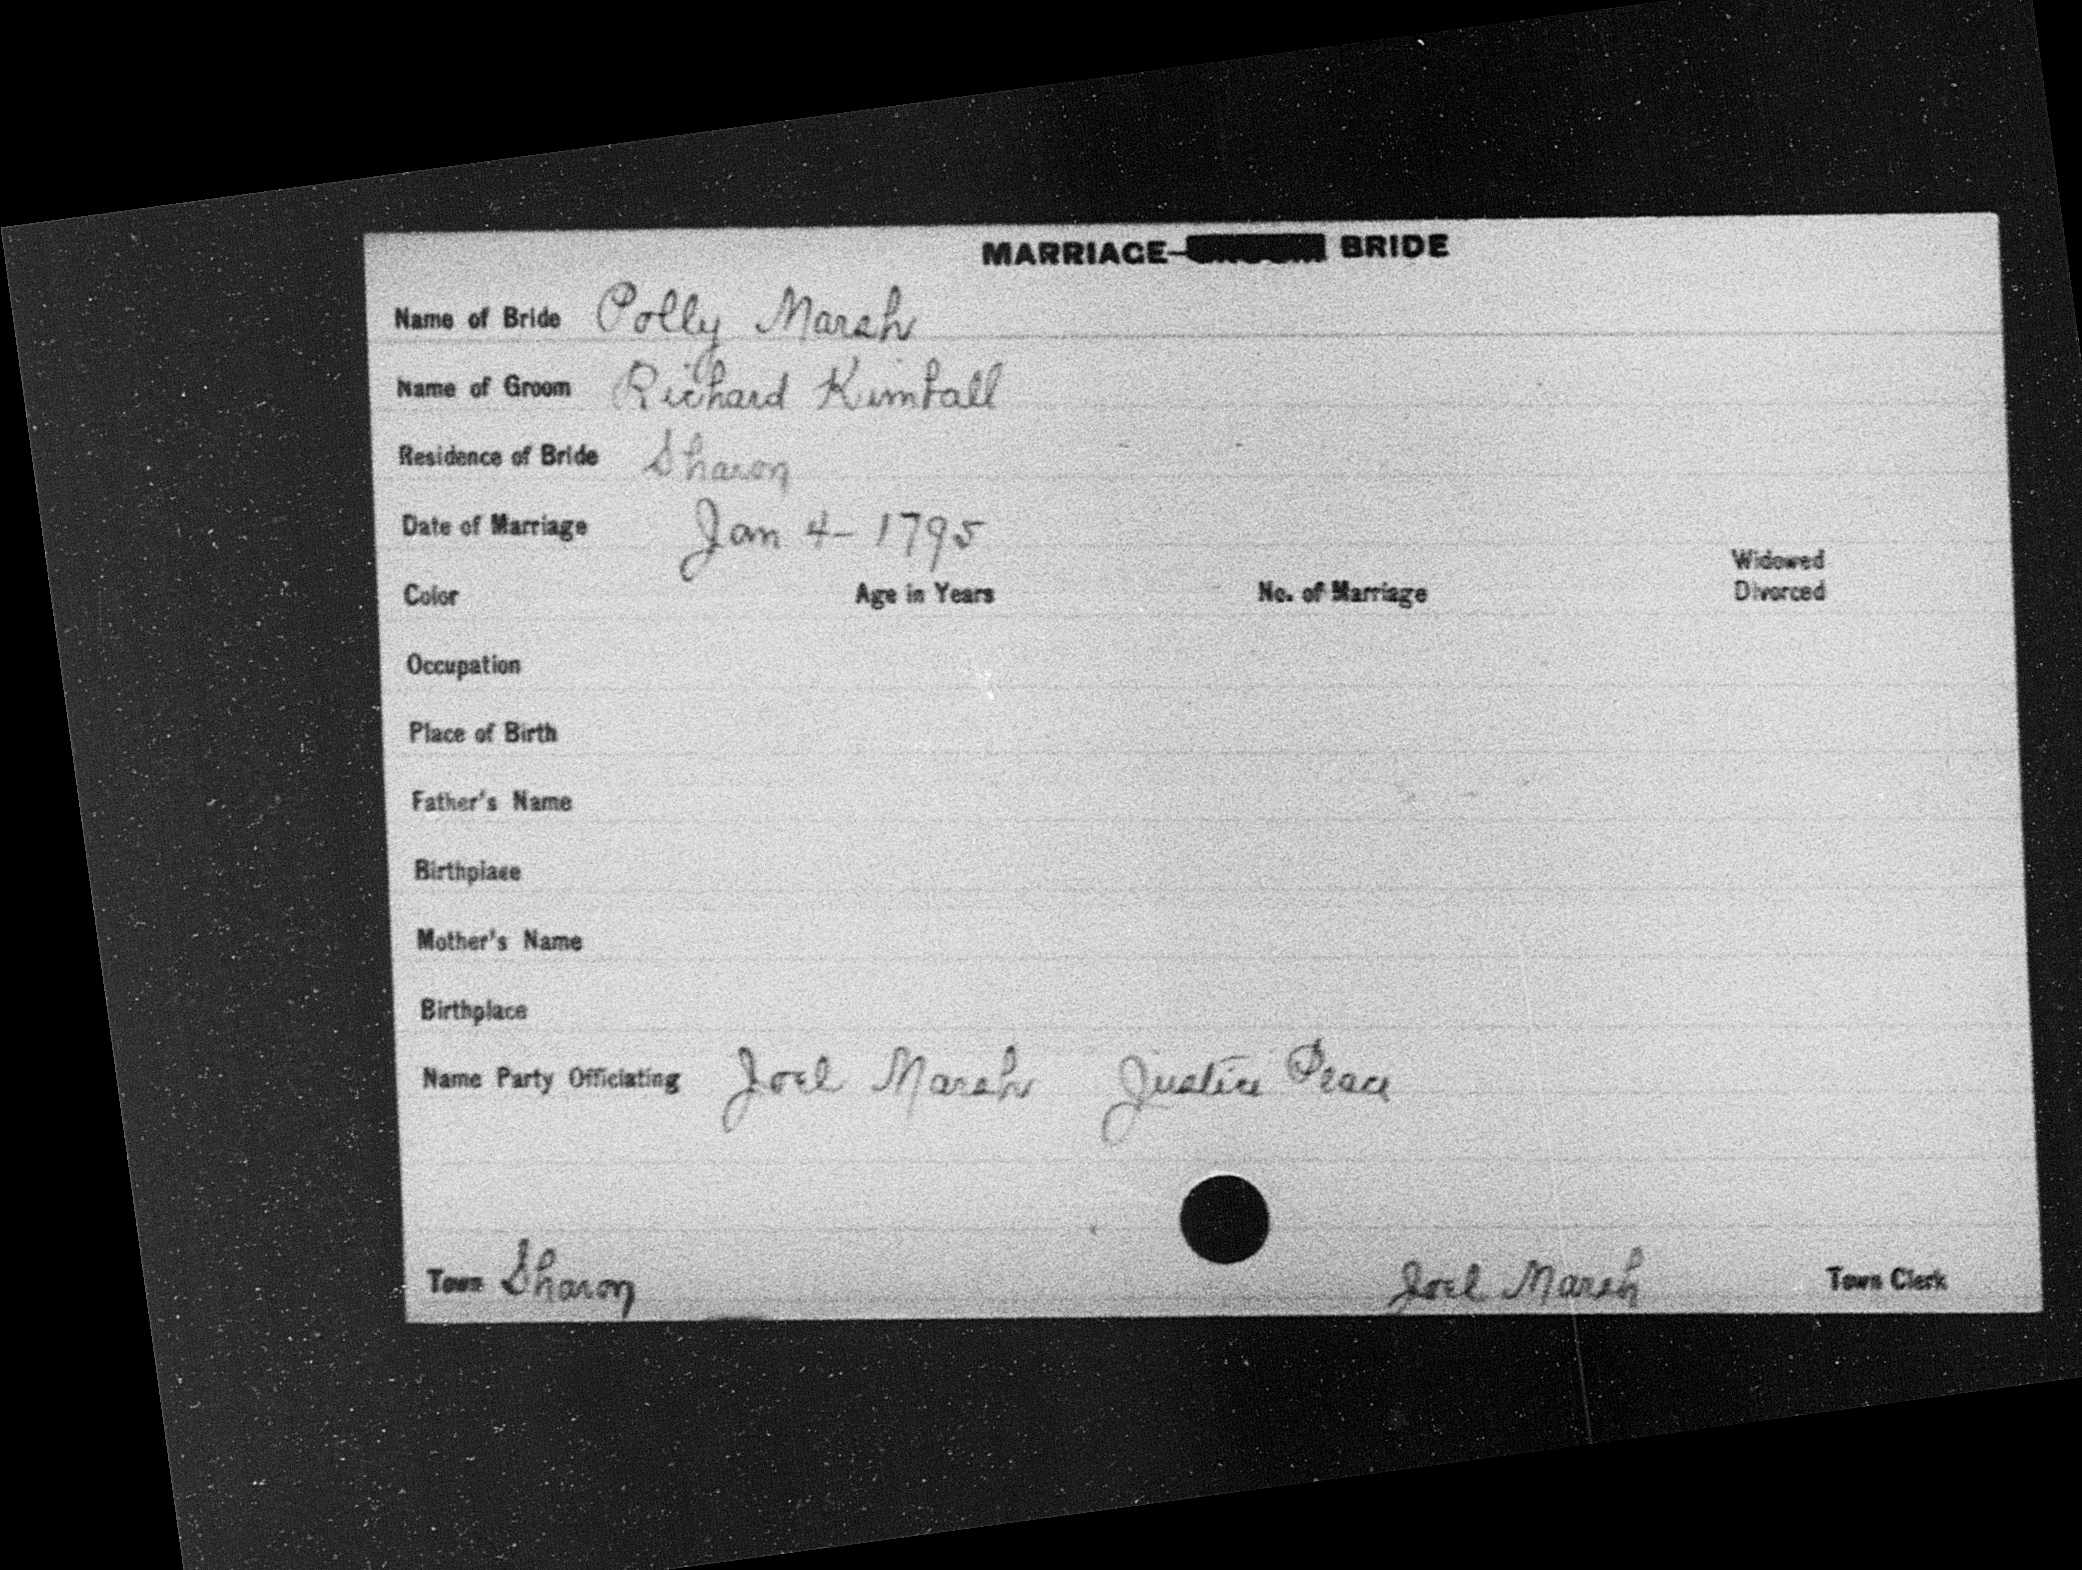 MARRIAGE— BRIDE
Name of Bride Polly Marsh
Name of Groom Richard Kimball
Residence of Bride Sharon
Date of Marriage Jan 4 - 1795
Widowed
Color Age in Years No. of Marriage Divorced
Occupation
Place of Birth
Father's Name
Birthplace
Mother's Name
Birthplace
Name Party Officiating Joel Marsh Justice Peace
Town Sharon Joel Marsh Town Clerk